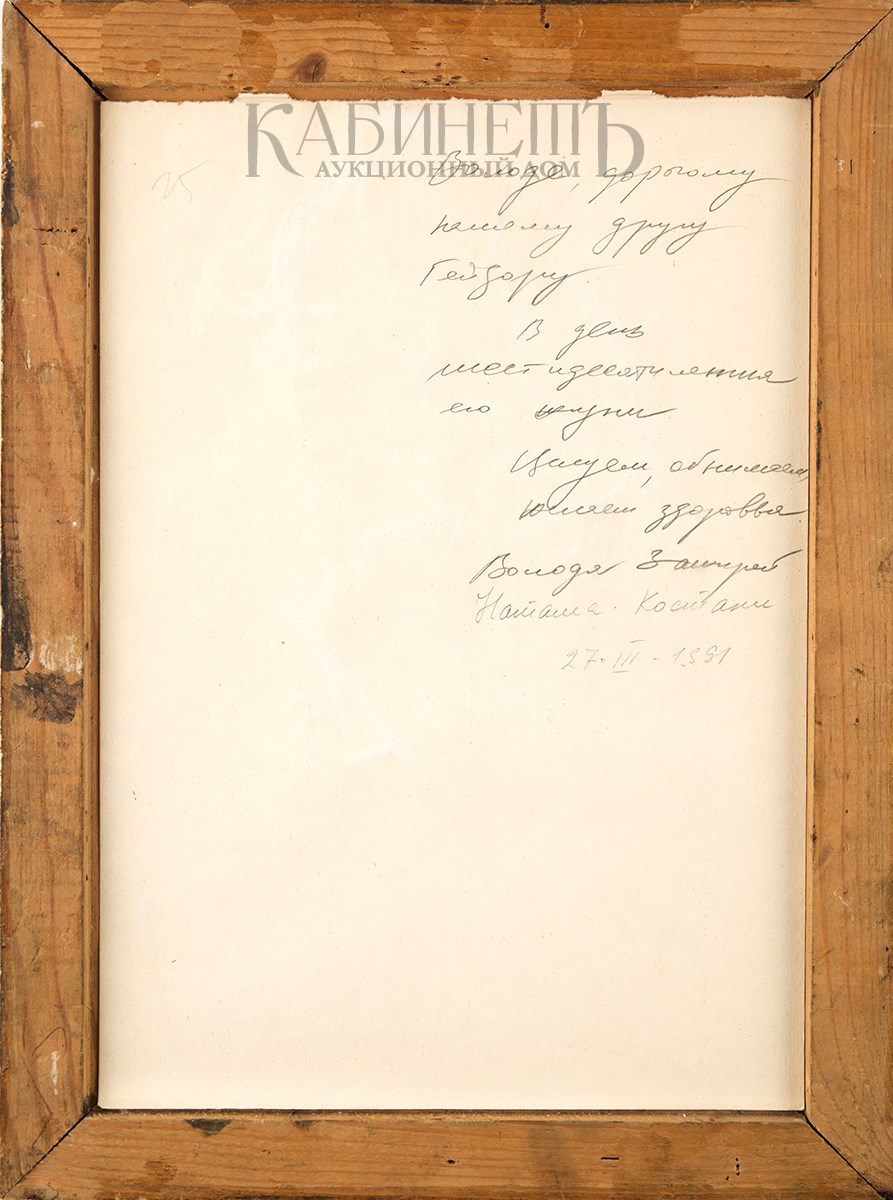 КАБИНЕТЪ
АУКЦИОННЫЙ ДОМ
25
Володе, дорогому
нашему другу
Гейдору
В день
шестидесятилетия
его жизни
Целуем, обнимаем,
желаем здоровья
Володя
Наташа. Костаки
27-III-1991